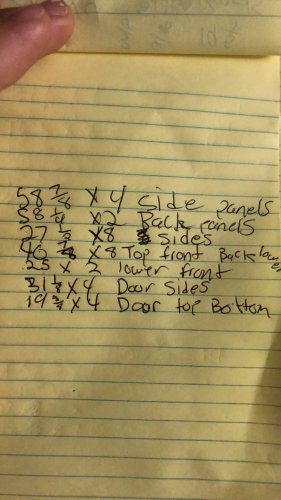 58 7/8 x 4 side panels
58 1/4 x 2 Back panels
27 1/2 x 8 sides
40 7/8 x 8 Top front Back lower
25 x 2 lower front
31 1/8 x 4 Door sides
19 3/4 x 4 Door top Bottom